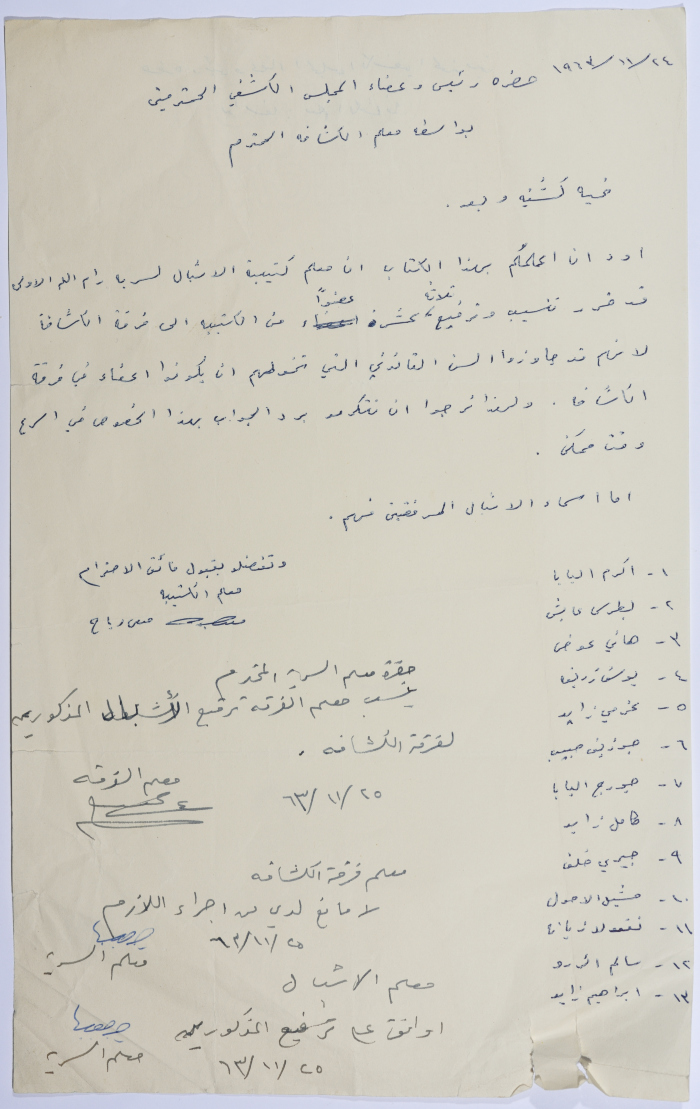 ١٩٦٣/١١/٢٤
حضرة رئيس وعضاء المجلس الكشفي المحترمين
بواسطة معلم الكشافة المحترم
تحية كشفيه وبعد .
اود ان اعلمكم بهذا الكتاب ان معلم كتيبة الاشبال لسرية رام الله الاولى
قد قرر تنسيب وترفيع ثلاثة عشرة عضواً من الكتيبه الى فرقة الكشافة
لانهم قد جاوزوا السن القانوني التي تخولهم ان يكونوا اعضاء في فرقة
الكشافة . ولهذا نرجوا ان تتكرمو برد الجواب بهذا الخصوص في اسرع
وقت ممكن .
اما اسماء الاشبال المرفقين فهم .
١- اكرم البابا
٢- بطرس عايش
٣- هاني عوض
٤-
٥- زايد
٦- جوزيف حبيب
٧- جورج البابا
٨- كامل زايد
٩- جبري خلف
١٠- ميشيل الاحول
١١- نقولا زيادة
١٢- سالم
١٣- ابراهيم زايد
وتفضلو بقبول فائق الاحترام
معلم الكتيبة
حضرة معلم السرية المحترم
ينسب معلم الفرقة ترفيع الأشبال المذكورين
لفرقة الكشافه .
٦٣/١١/٢٥
معلم الفرقه
معلم فرقة الكشافه
لا مانع لدي من اجراء اللازم
٦٣/١١/٢٥
معلم السرية
معلم الاشبال
اوافق على ترفيع المذكورين
٦٣/١١/٢٥
معلم السرية